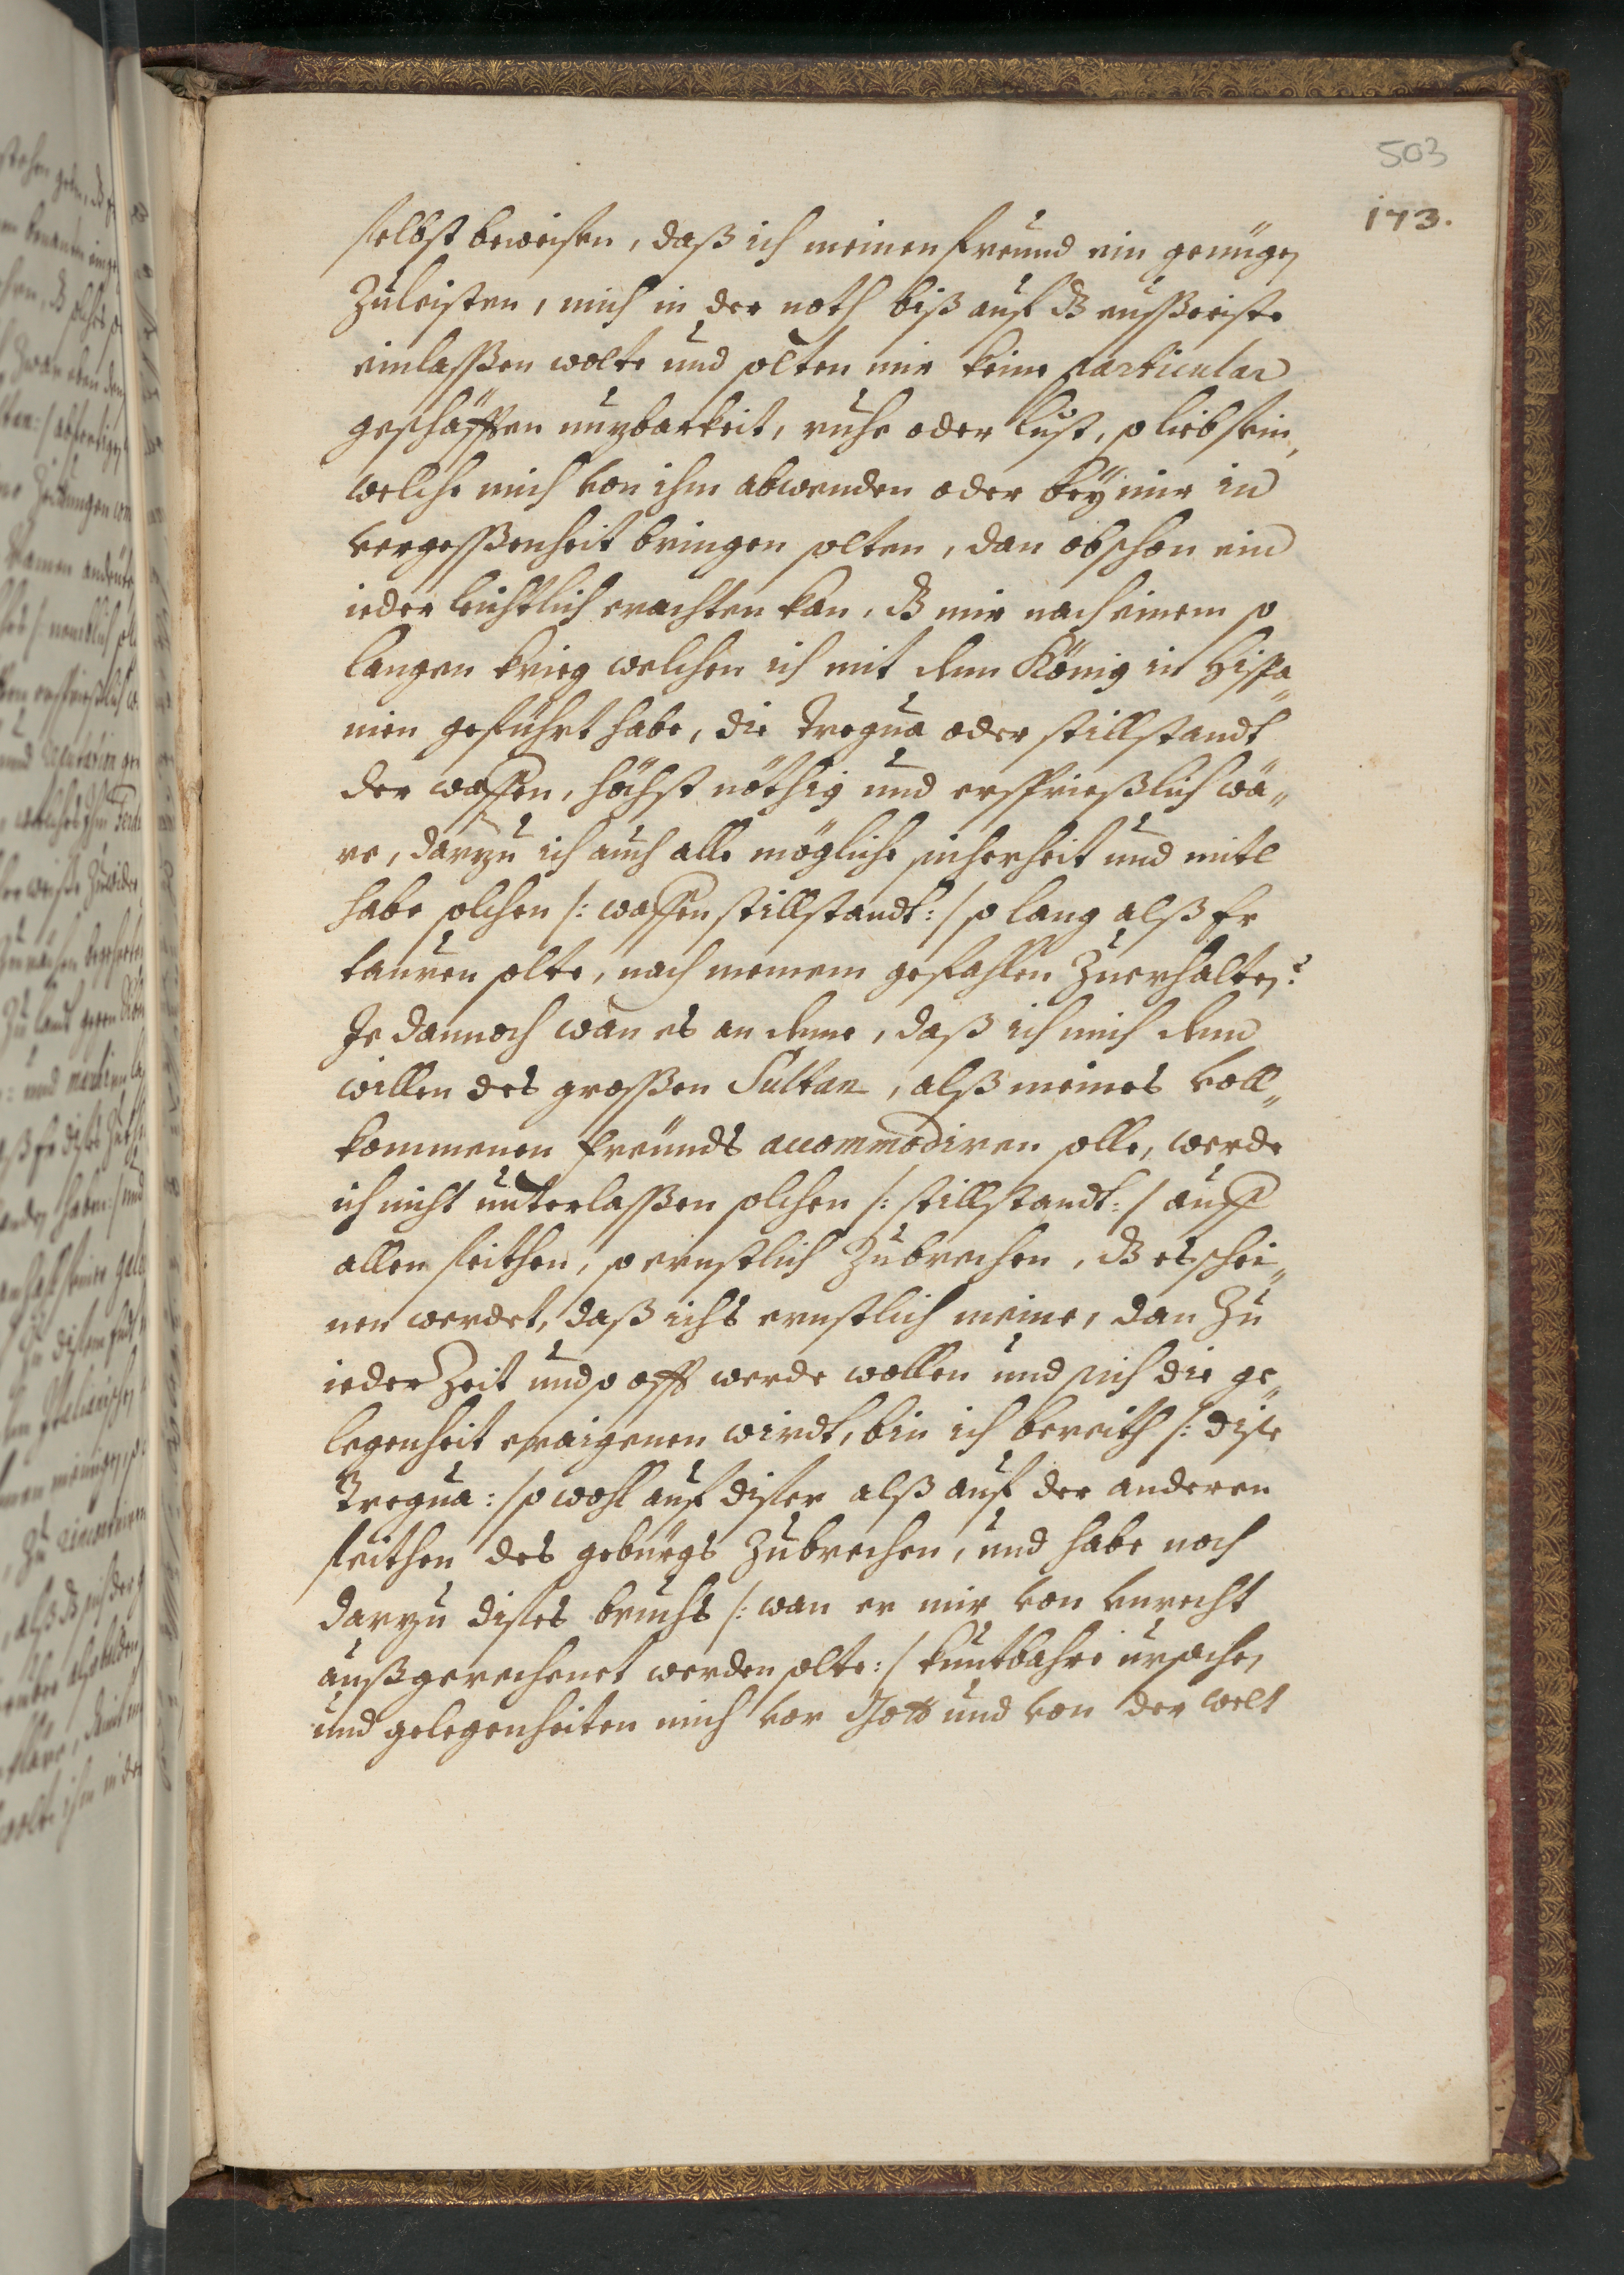 503
173.
selbst beweisen, daß ich meinen freund ein genügen
Zuleisten, mich in der noth biß auf dß eußeriste
einlasßen wolte und solten mir keine particular
geschäfften nuzbarkeit, ruhe oder Lust, so lieb sein,
welche mich von ihm abwenden oder beÿ mir in
vergesßenheit bringen solten, dan obschon ein
ieder leichtlich erachten kan, dß mir nach einem so
langen krieg welchen ich mit dem König in Hispa„
nien geführt habe, die Tregua oder stillstandt
der waffen, höchst nöthig und ersprießlich wä„
re, darzu ich auch alle mögliche sicherheit und mitl
habe solchen /: waffen stillstandt: / so lang alß Er
tauren solte, nach meinem gefahlen Zuerhalten:
Je dannoch wan es an deme, daß ich mich dem
willen des grosßen Sultan, alß meines voll„
kommenen freünds accommodiren solle, werde
ich nicht unterlasßen solchen /: stillstandt: / auff
allen seithen, so ernstlich Zubrechen, dß es schei„
nen werdet, daß ichs ernstlich meine, dan Zu
ieder Zeit und so offt werde wollen und sich die ge„
legenheit eraigenen wirdt, bin ich bereith /: dise
Tregua: / so wohl auf diser alß auf der anderen
seithen des gebürgs Zubrechen, und habe noch
darzu dises bruchs /: wan er mir von vnrecht
außgerechenet werden solte: / kuntbahre ursachen
und gelegenheiten mich vor Gott und von der welt